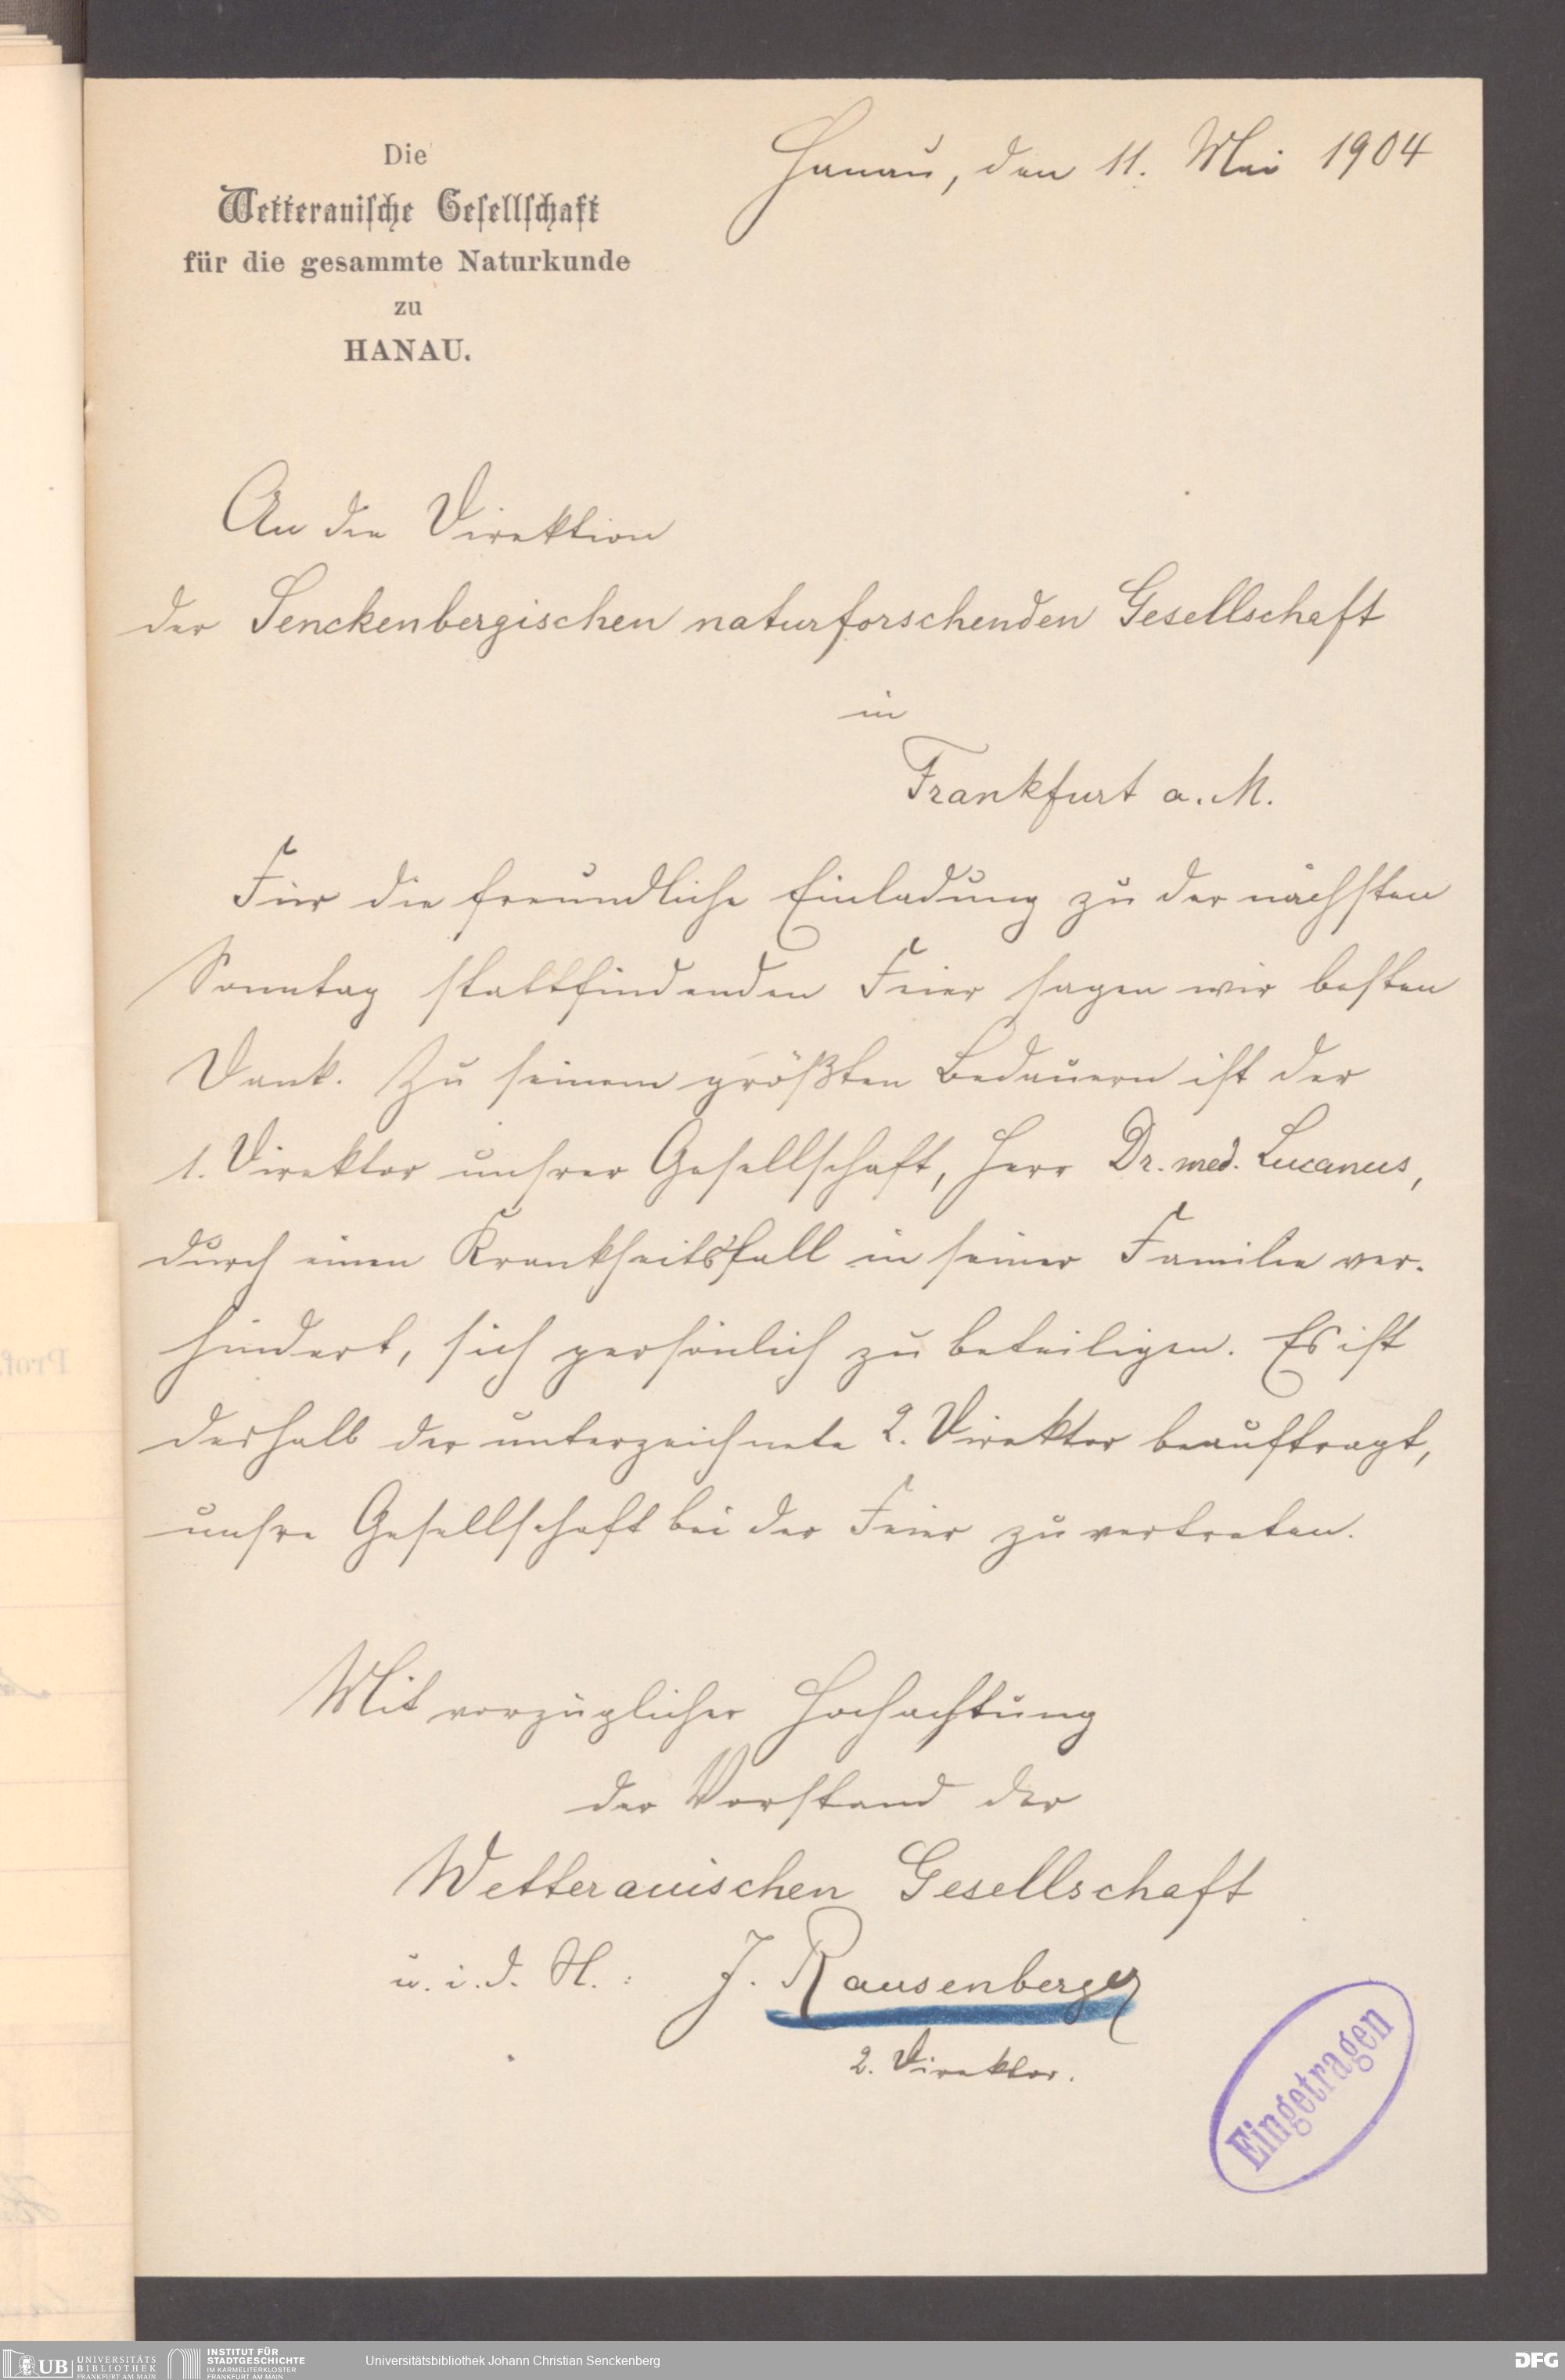 Die
Wetterauische Gesellschaft
für die gesammte Naturkunde
zu
HANAU.
Hanau, den 11. Mai 1904
An die Direktion
der Senckenbergischen naturforschenden Gesellschaft
in
Frankfurt a. M.
Für die freundliche Einladung zu der nächsten
Sonntag stattfindenden Feier sagen wir besten
Dank. Zu seinem größten Bedauern ist der
1. Direktor unsrer Gesellschaft, Herr Dr. med. Lucanus,
durch einen Krankheitsfall in seiner Familie ver-
hindert, sich persönlich zu beteiligen. Es ist
deshalb der unterzeichnete 2. Direktor beauftragt,
unsre Gesellschaft bei der Feier zu vertreten.
Mit vorzüglicher Hochachtung
der Vorstand der
Wetterauischen Gesellschaft
u. i. d. N.: J. Rausenberger
2. Direktor.
Eingetragen
UB UNIVERSITÄTS
BIBLIOTHEK
FRANKFURT AM MAIN
INSTITUT FÜR
STADTGESCHICHTE
IM KARMELITERKLOSTER
FRANKFURT AM MAIN
Universitätsbibliothek Johann Christian Senckenberg
DFG